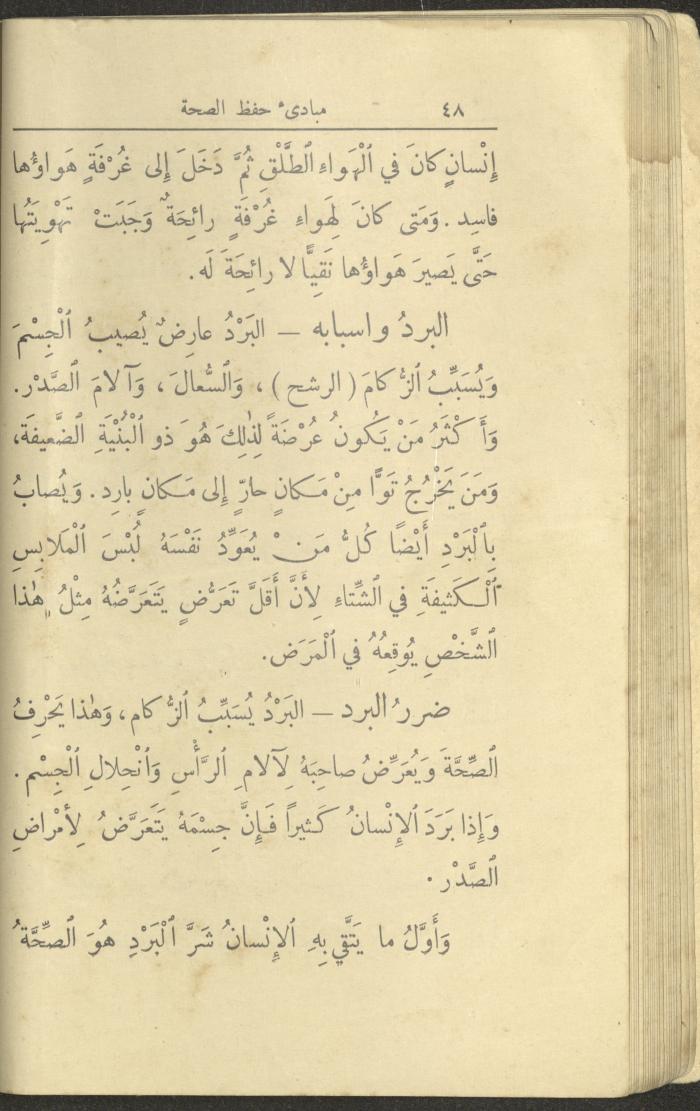 ٤٨ مبادىء حفظ الصحة
إِنْسانٍ كانَ في ٱلْهَواءِ ٱلطَّلْقِ ثُمَّ دَخَلَ إِلى غُرْفَةٍ هَواؤُها
فاسِد. وَمَتى كانَ لِهَواءِ غُرْفَةٍ رائِحَةٌ وَجَبَتْ تَهْوِيَتُها
حَتَّى يَصيرَ هَواؤُها نَقِيًّا لا رائِحَةَ لَه.
البردُ واسبابه – البَرْدُ عارِضٌ يُصيبُ ٱلْجِسْمَ
وَيُسَبِّبُ ٱلزُّكامَ (الرشح)، وَٱلسُّعالَ، وَآلامَ ٱلصَّدْر.
وَأَكْثَرُ مَنْ يَكُونُ عُرْضَةً لِذٰلِكَ هُوَ ذو ٱلْبُنْيَةِ ٱلضَّعيفَة،
وَمَنَ يَخْرُجُ تَوًّا مِنْ مَكانٍ حارٍّ إِلى مَكانٍ بارِد. وَيُصابُ
بِٱلْبَرْدِ أَيْضًا كُلُّ مَنْ يُعَوِّدُ نَفْسَهُ لُبْسَ ٱلْمَلابِسِ
ٱلْكَثيفَةِ في ٱلشِّتاءِ لِأَنَّ أَقَلَّ تَعَرُّضٍ يَتَعَرَّضُهُ مِثْلُ هٰذا
ٱلشَّخْصِ يُوقِعُهُ في ٱلْمَرَض.
ضررُ البرد – البَرْدُ يُسَبِّبُ ٱلزُّكام، وَهٰذا يَحْرِفُ
ٱلصِّحَّةَ وَيُعَرِّضُ صاحِبَهُ لِآلامِ ٱلرَّأْسِ وَٱنْحِلالِ ٱلْجِسْم.
وَإِذا بَرَدَ ٱلإِنْسانُ كَثيراً فَإِنَّ جِسْمَهُ يَتَعَرَّضُ لِأَمْراضِ
ٱلصَّدْر.
وَأَوَّلُ ما يَتَّقي بِهِ ٱلإِنْسانُ شَرَّ ٱلْبَرْدِ هُوَ ٱلصِّحَّةُ